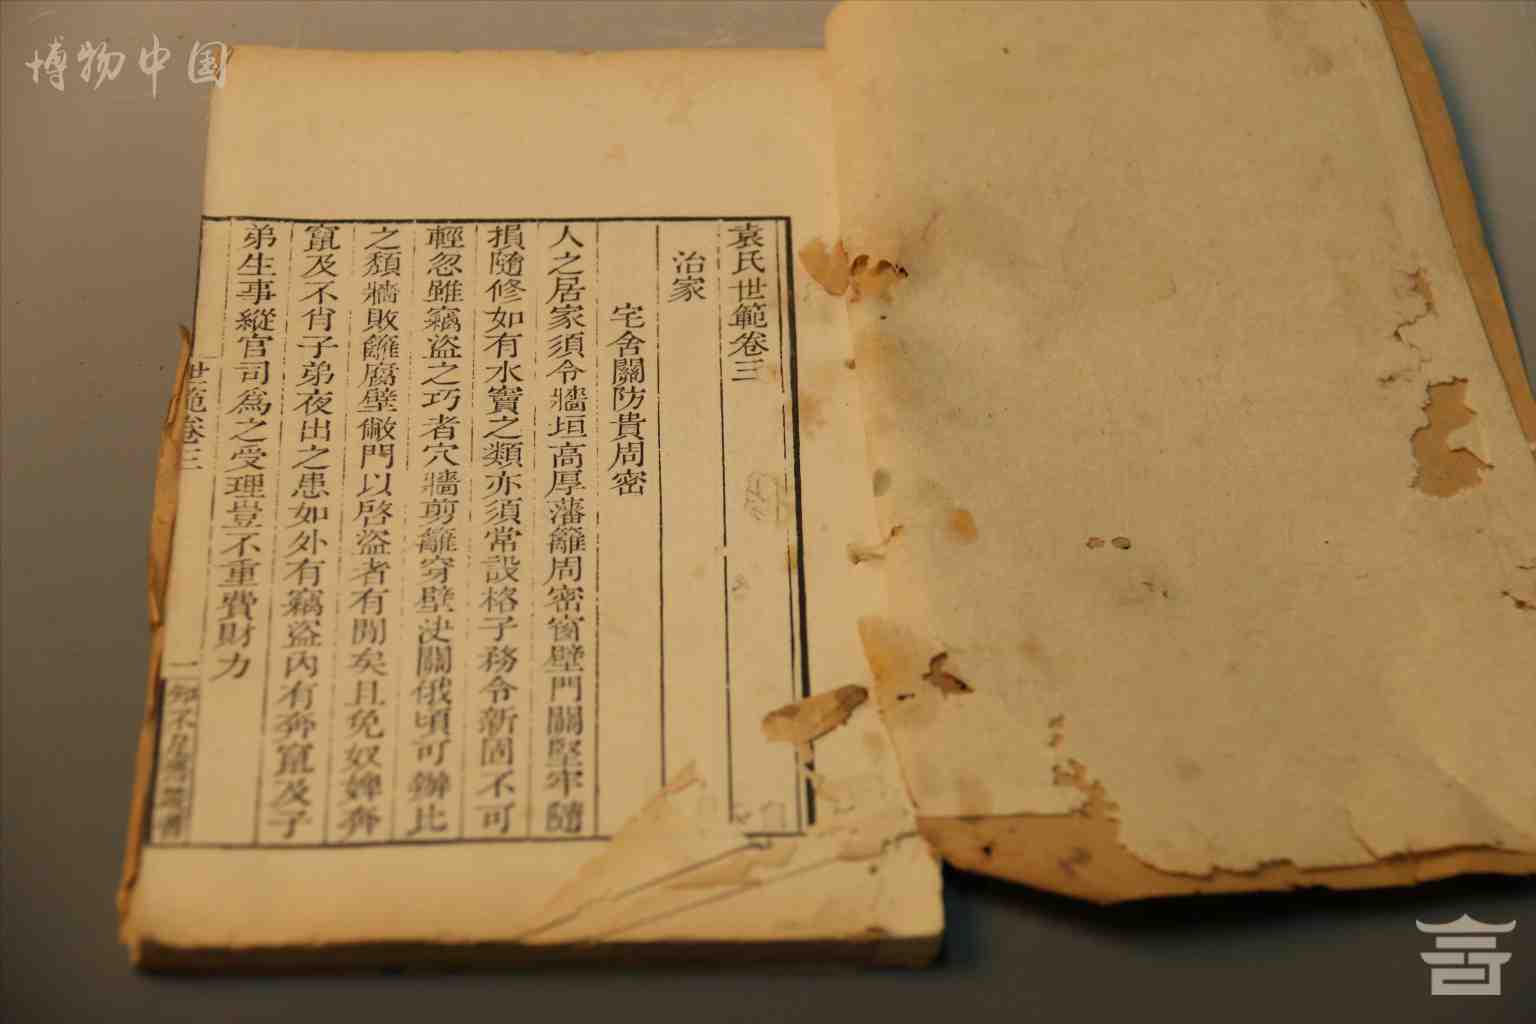 博物中国
袁氏世範卷三
治家
宅舍關防貴周密
人之居家須令牆垣高厚藩籬周密窗壁門關堅牢隨
損隨修如有水竇之類亦須常設格子務令新固不可
輕忽雖竊盜之巧者穴牆剪籬穿壁決關俄頃可辦比
之頹牆敗籬腐壁敝門以啓盜者有閒矣且免奴婢奔
竄及不肖子弟夜出之患如外有竊盜內有奔竄及子
弟生事縱官司爲之受理豈不重費財力
世範卷三
一
知不足齋叢書